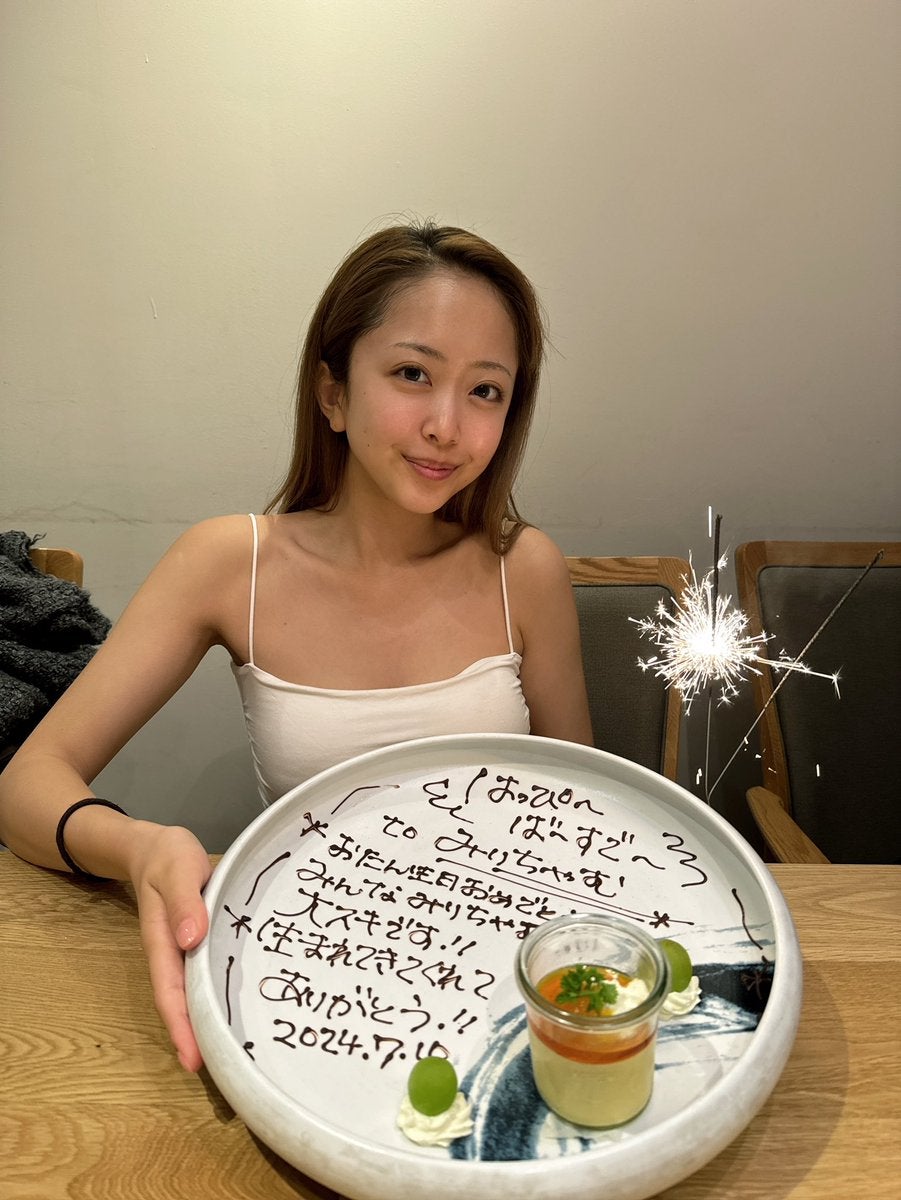 はっぴ〜
ばーすで〜
to みりちゃむ
おたん生日おめでと
みんなみりちゃむ
大スキです!!
生まれてきてくれて
ありがとう!!
2024.7.10